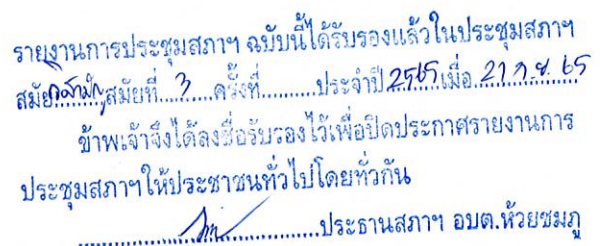 รายงานการประชุมสภาฯ ฉบับนี้ได้รับรองแล้วในประชุมสภาฯ
สมัยวิสามัญสมัยที่...3...ครั้งที่..........ประจำปี 2565 เมื่อ 21 ก.ย. 65
ข้าพเจ้าจึงได้ลงชื่อรับรองไว้เพื่อปิดประกาศรายงานการ
ประชุมสภาฯให้ประชาชนทั่วไปโดยทั่วกัน
ประธานสภาฯ อบต.ห้วยชมภู